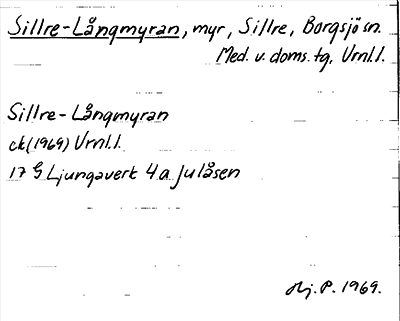 Sillre-Långmyran, myr, Sillre, Borgsjö sn.
Med. v. doms. tg, Vrnl.l.
Sillre-Långmyran
ek (1969) Vrnl.l.
17 G Ljungaverk 4 a Julåsen
Hj. P. 1969.